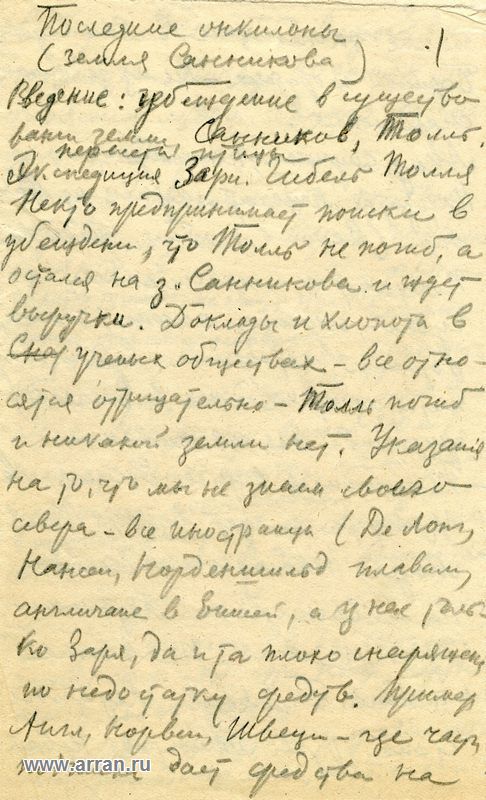 Последние онкилоны
(Земля Санникова) 1
Введение: убеждение в существо
вании земли Санников, Толль.
перелеты птицы
Экспедиция Зари. Гибель Толля
Некто предпринимает поиски в
убеждении, что Толль не погиб, а
остался на з. Санникова и ждет
выручки. Доклады и хлопоты в
ученых обществах – все отно-
сятся отрицательно – Толль погиб
и никакой земли нет. Указания
на то, что мы не знаем своего
севера – все иностранцы (Де Лонг,
Нансен, Норденшильд плавали,
англичане в , а у нас толь-
ко Заря, да и та плохо снаряжена
по недостатку средств. Пример
Англ, Норвеги, Швеции – где част
дает средства на
www.arran.ru